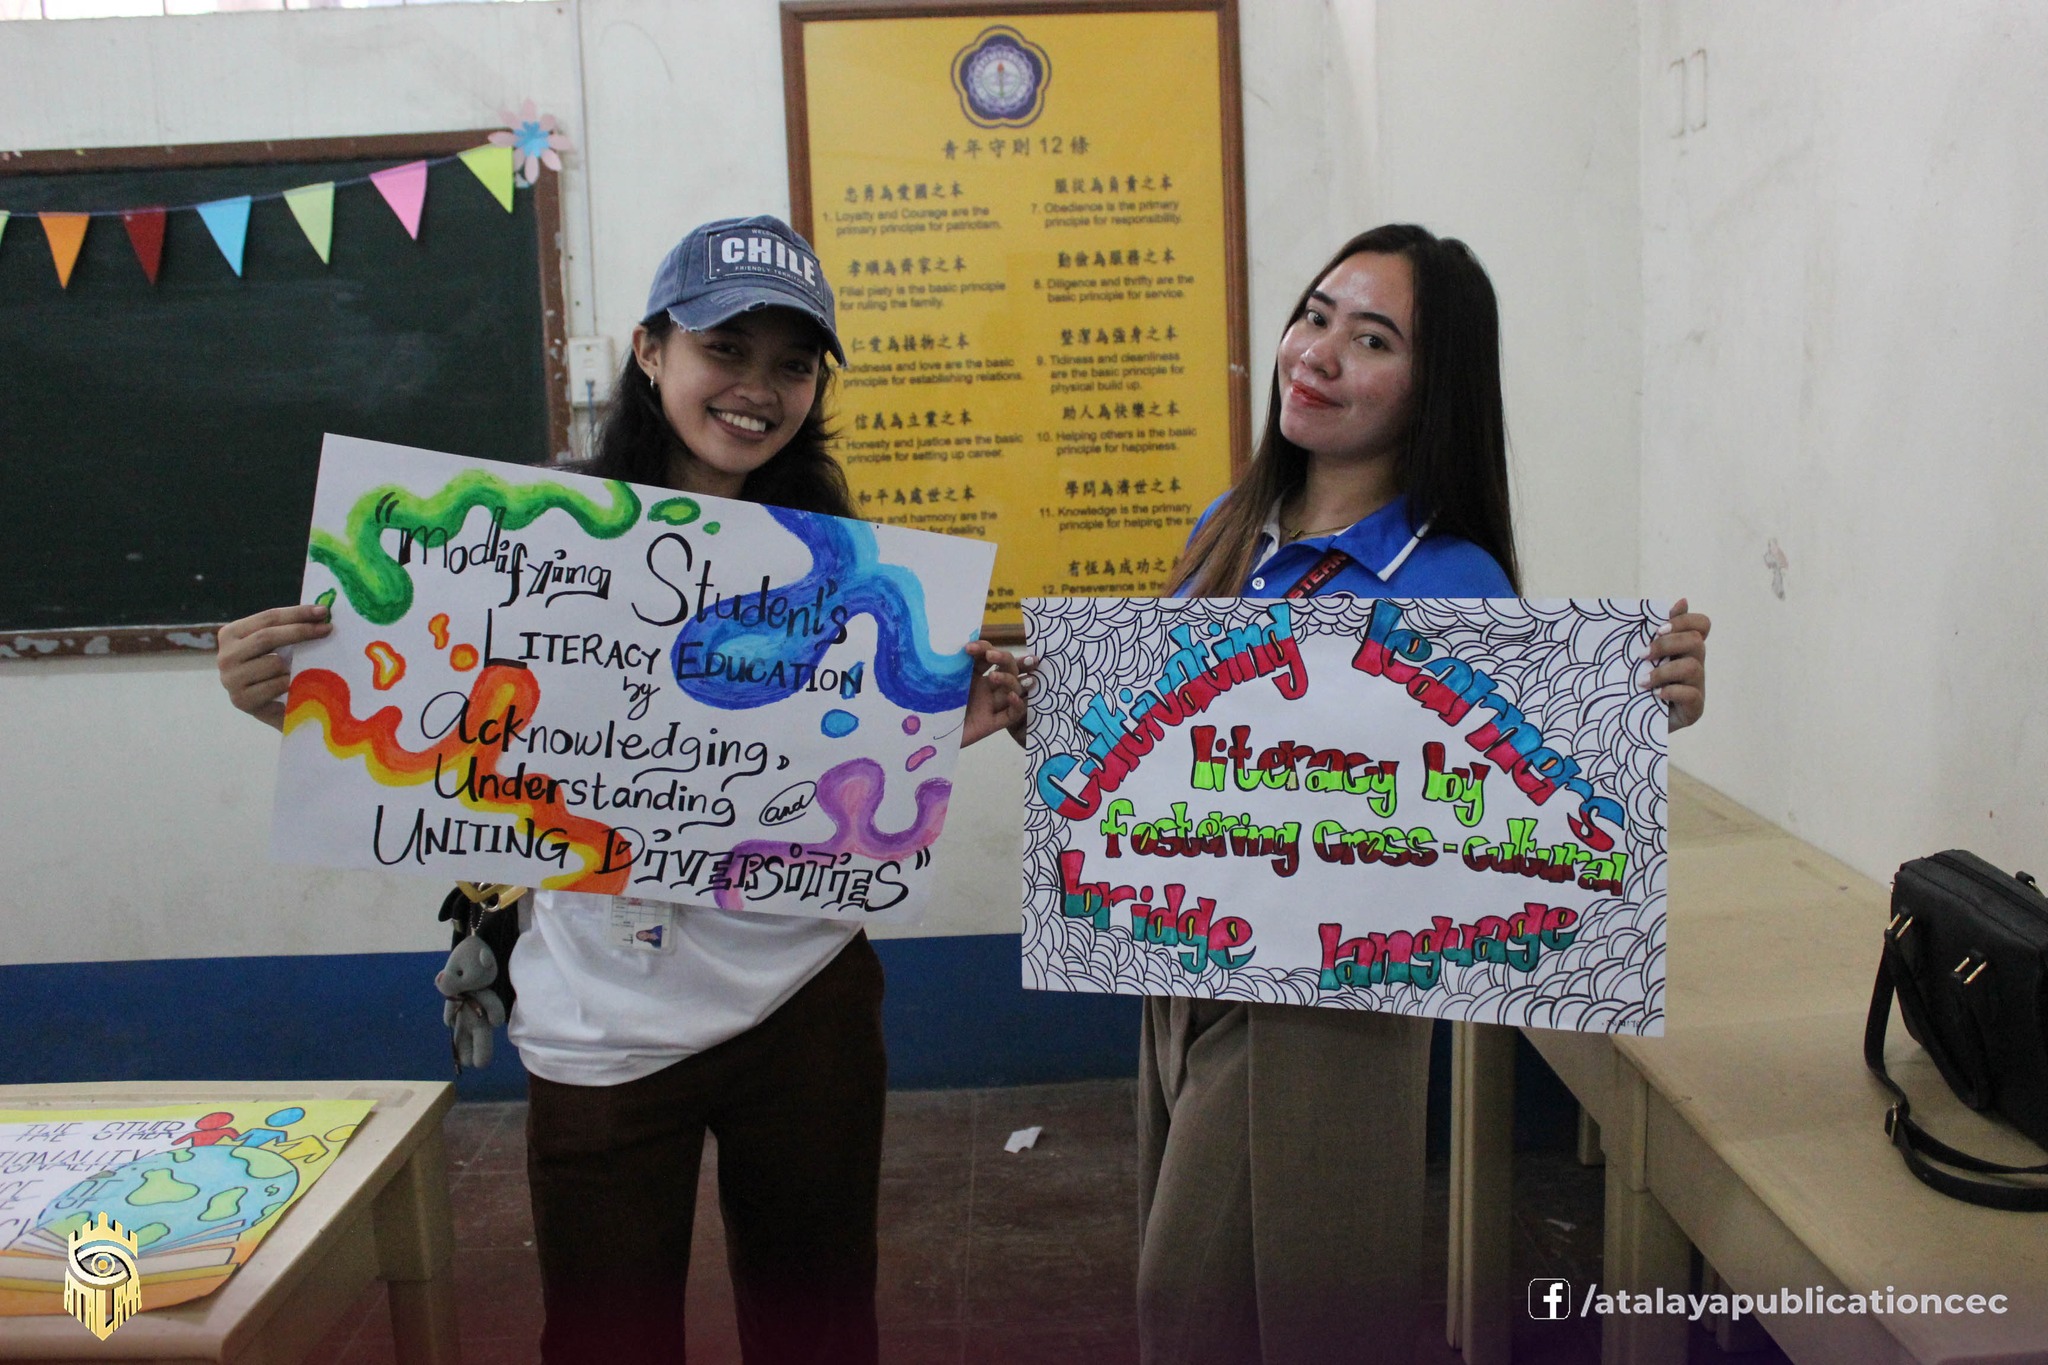 青年守則 12 條
忠勇為愛國之本
1. Loyalty and Courage are the
primary principle for patriotism.
孝順為齊家之本
Filial piety is the basic principle
for ruling the family.
仁愛為接物之本
Kindness and love are the basic
principle for establishing relations.
信義為立業之本
Honesty and justice are the basic
principle for setting up career.
和平為處世之本
and harmony are the
for dealing
服從為負責之本
7. Obedience is the primary
principle for responsibility.
勤儉為服務之本
8. Diligence and thrifty are the
basic principle for service.
整潔為強身之本
9. Tidiness and cleanliness
are the basic principle for
physical build up.
助人為快樂之本
10. Helping others is the basic
principle for happiness.
學問為濟世之本
11. Knowledge is the primary
principle for helping the
有恆為成功之
12. Perseverance is the
CHILE
FRIENDLY
"Modifying Student's
LITERACY EDUCATION
by
Acknowledging,
Understanding and
UNITING DiVERSiTiES"
Cultivating learner's
literacy by
fostering cross-cultural
bridge language
THE OTHER
OF
ATALAYA
f /atalayapublicationcec